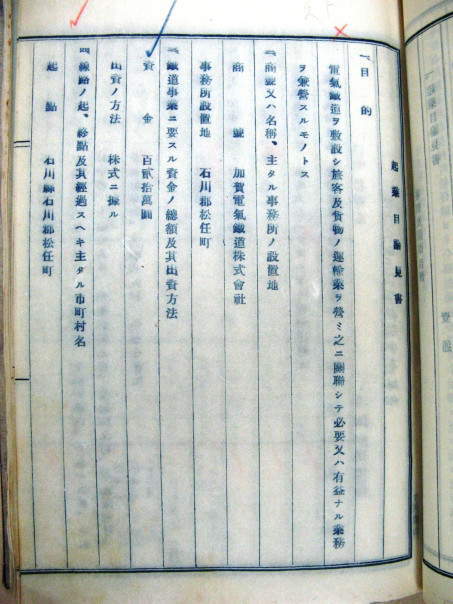 起業目論見書
一、目的
電氣鐵道ヲ敷設シ旅客及貨物ノ運輸業ヲ營ミ之ニ關聯シテ必要又ハ有益ナル業務
ヲ兼營スルモノトス
二、商號又ハ名稱、主タル事務所ノ設置地
商號 加賀電氣鐵道株式會社
事務所設置地 石川郡松任町
三、鐵道事業ニ要スル資金ノ總額及其出資方法
資金 百貳拾萬圓
出資ノ方法 株式ニ據ル
四、線路ノ起、終點及其經過スヘキ主タル市町村名
起點 石川縣石川郡松任町